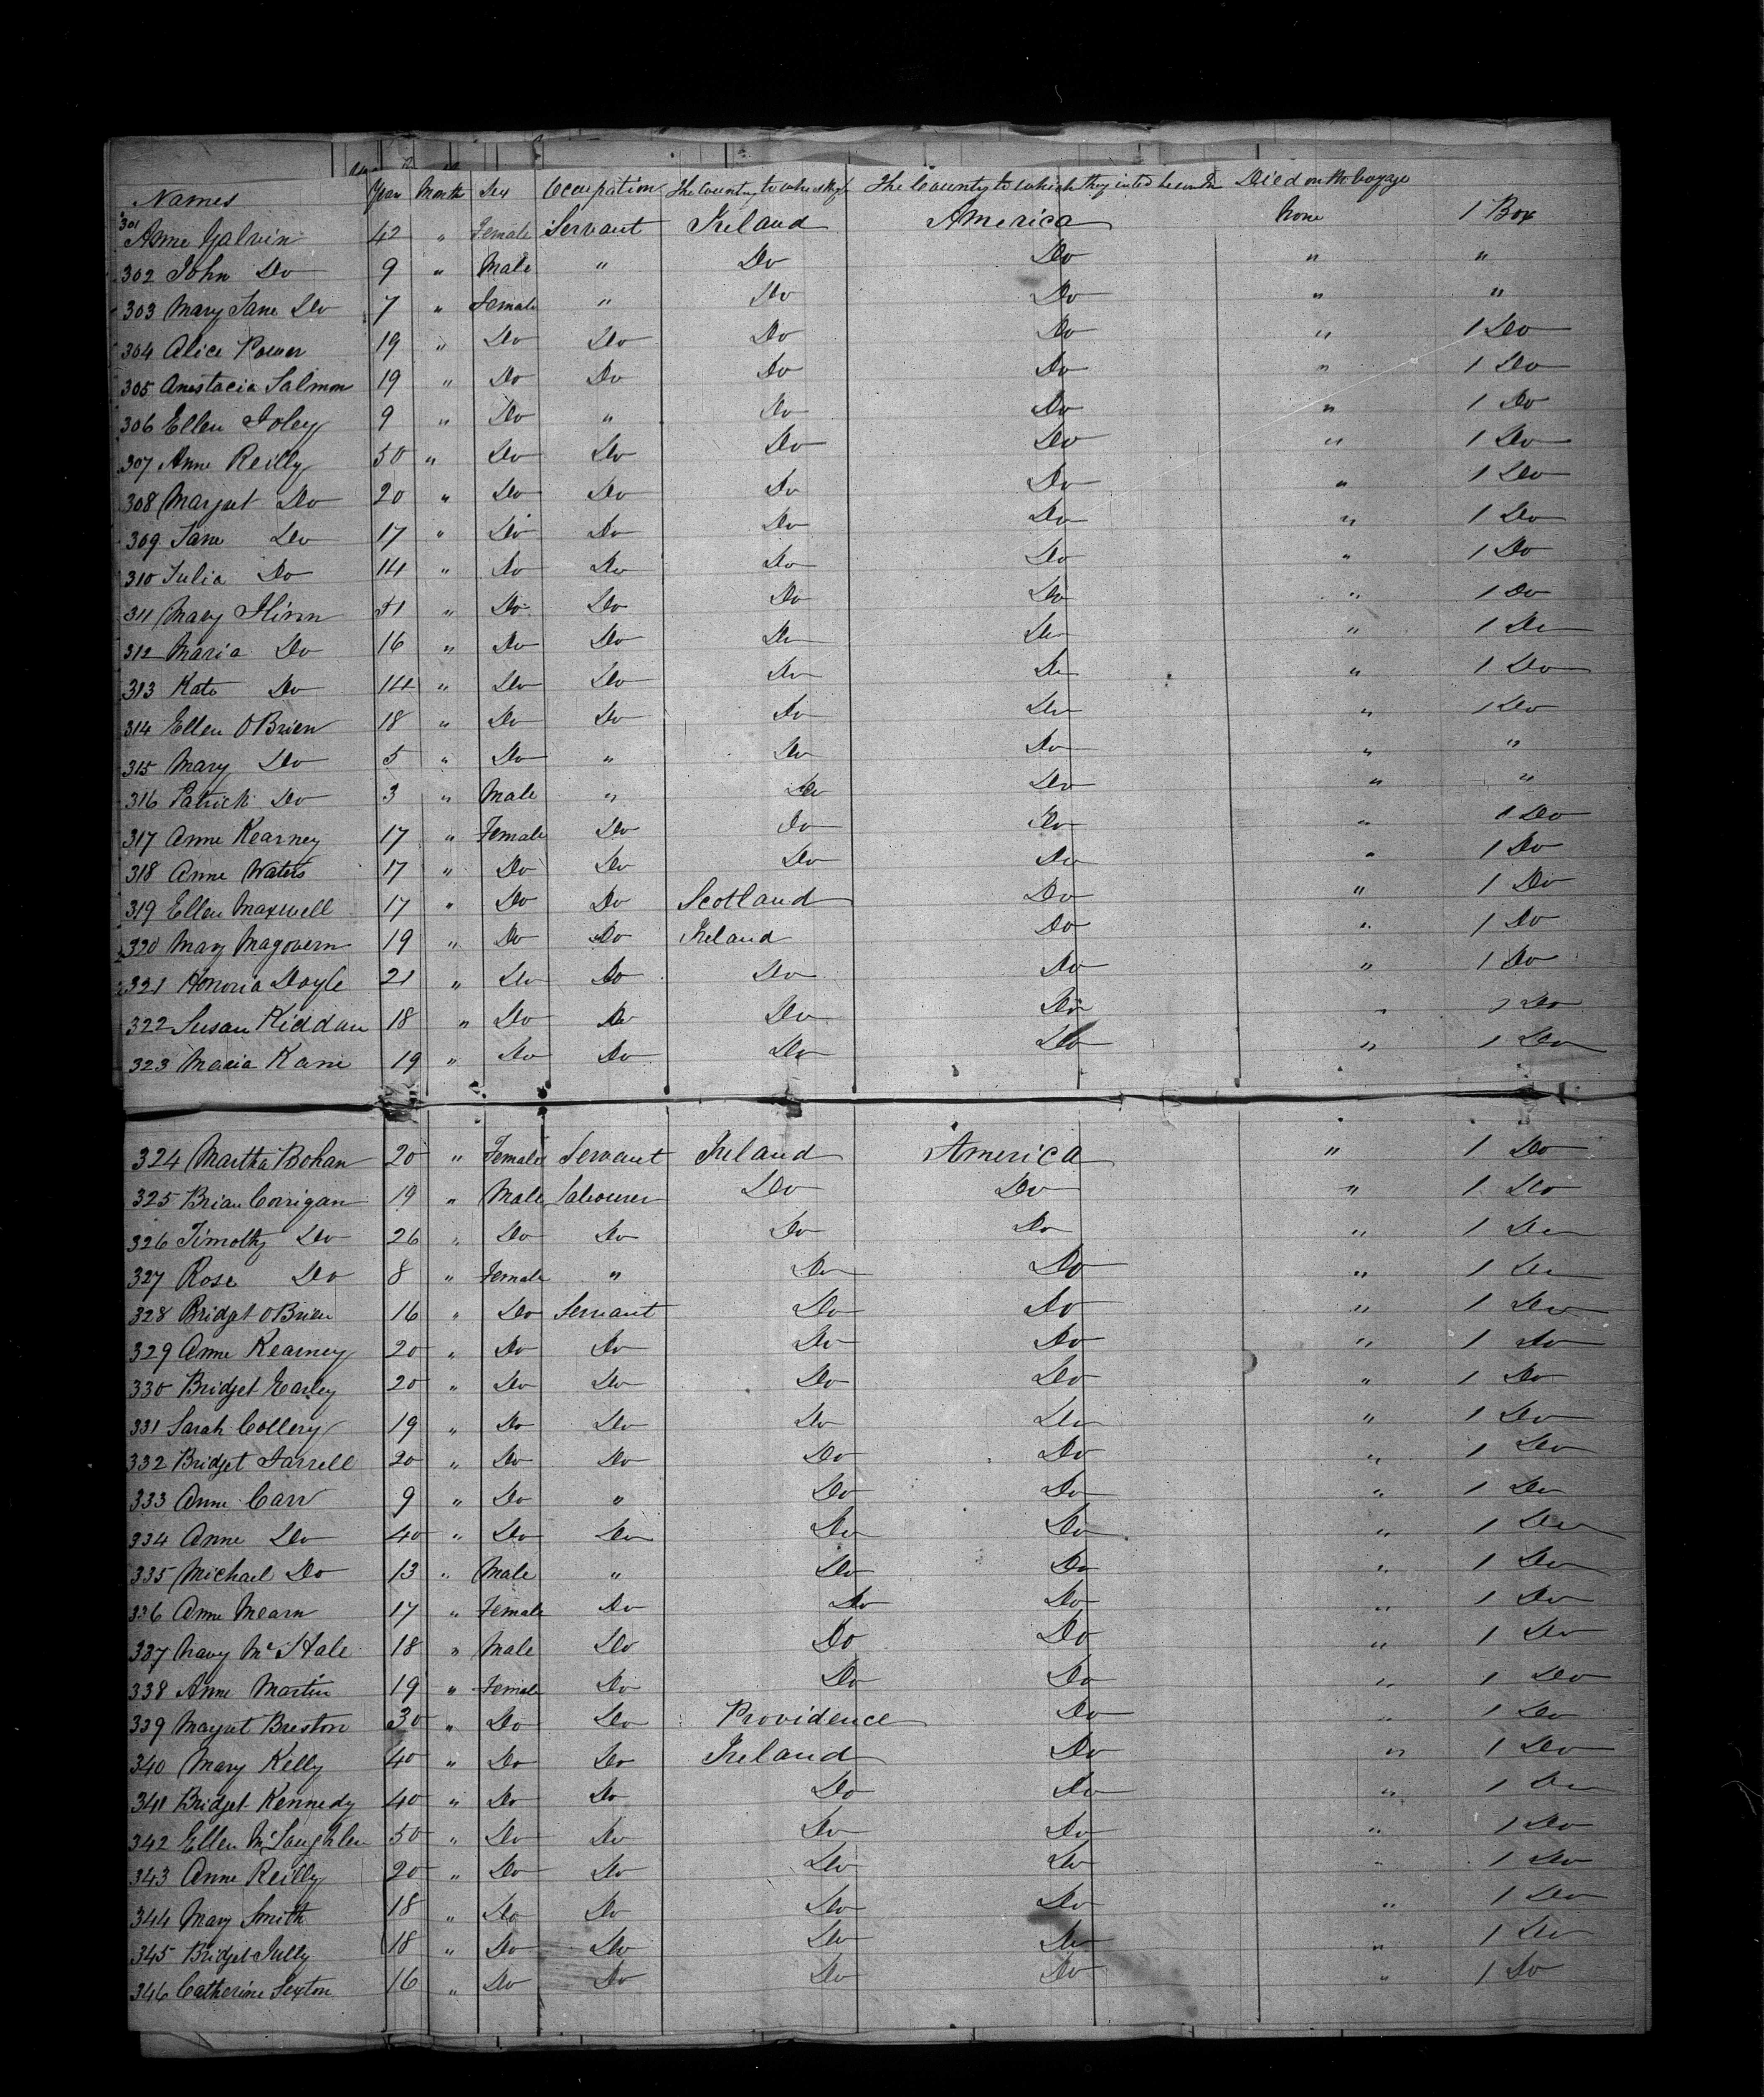 Names Years Month Sex Occupation The Country to which they The Country to which they intend Died on the Voyage
301 Anne Galvin 42 " Female Servant Ireland America None 1 Box
302 John Do 9 " Male " Do Do " "
303 Mary Jane Do 7 " Female " Do Do " "
304 Alice Power 19 " Do Do Do Do " 1 Do
305 Anastacia Salmon 19 " Do Do Do Do " 1 Do
306 Ellen Foley 9 " Do " Do Do " 1 Do
307 Anne Reilly 50 " Do Do Do Do " 1 Do
308 Margret Do 20 " Do Do Do Do " 1 Do
309 Jane Do 17 " Do Do Do Do " 1 Do
310 Julia Do 14 " Do Do Do Do " 1 Do
311 Mary Flinn 51 " Do Do Do Do " 1 Do
312 Maria Do 16 " Do Do Do Do " 1 Do
313 Kate Do 14 " Do Do Do Do " 1 Do
314 Ellen OBrien 18 " Do Do Do Do " 1 Do
315 Mary Do 5 " Do " Do Do " "
316 Patrick Do 3 " Male " Do Do " "
317 Anne Kearney 17 " Female Do Do Do " 1 Do
318 Anne Waters 17 " Do Do Do Do " 1 Do
319 Ellen Maxwell 17 " Do Do Scotland Do " 1 Do
320 Mary Magovern 19 " Do Do Ireland Do " 1 Do
321 Honoria Doyle 21 " Do Do Do Do " 1 Do
322 Susan Kiddau 18 " Do Do Do Do " Do
323 Maria Kane 19 " Do Do Do Do " 1 Do
324 Martha Bohan 20 " Female Servant Ireland America " 1 Do
325 Brian Corrigan 19 " Male Labourer Do Do " 1 Do
326 Timothy Do 26 " Do Do Do Do " 1 Do
327 Rose Do 8 " Female " Do Do " 1 Do
328 Bridget OBrien 16 " Do Servant Do Do " 1 Do
329 Anne Kearney 20 " Do Do Do Do " 1 Do
330 Bridget Earley 20 " Do Do Do Do " 1 Do
331 Sarah Collery 19 " Do Do Do Do " 1 Do
332 Bridget Farrell 20 " Do Do Do Do " 1 Do
333 Anne Carr 9 " Do " Do Do " 1 Do
334 Anne Do 40 " Do Do Do Do " 1 Do
335 Michael Do 13 " Male " Do Do " 1 Do
336 Anne Mearn 17 " Female Do Do Do " 1 Do
337 Mary McHale 18 " Male Do Do Do " 1 Do
338 Anne Martin 19 " Female Do Do Do " 1 Do
339 Margret Breston 30 " Do Do Providence Do " 1 Do
340 Mary Kelly 40 " Do Do Ireland Do " 1 Do
341 Bridget Kennedy 40 " Do Do Do Do " 1 Do
342 Ellen McLaughlen 50 " Do Do Do Do " 1 Do
343 Anne Reilly 20 " Do Do Do Do " 1 Do
344 Mary Smith 18 " Do Do Do Do " 1 Do
345 Bridget Tully 18 " Do Do Do Do " 1 Do
346 Catherine Sexton 16 " Do Do Do Do " 1 Do